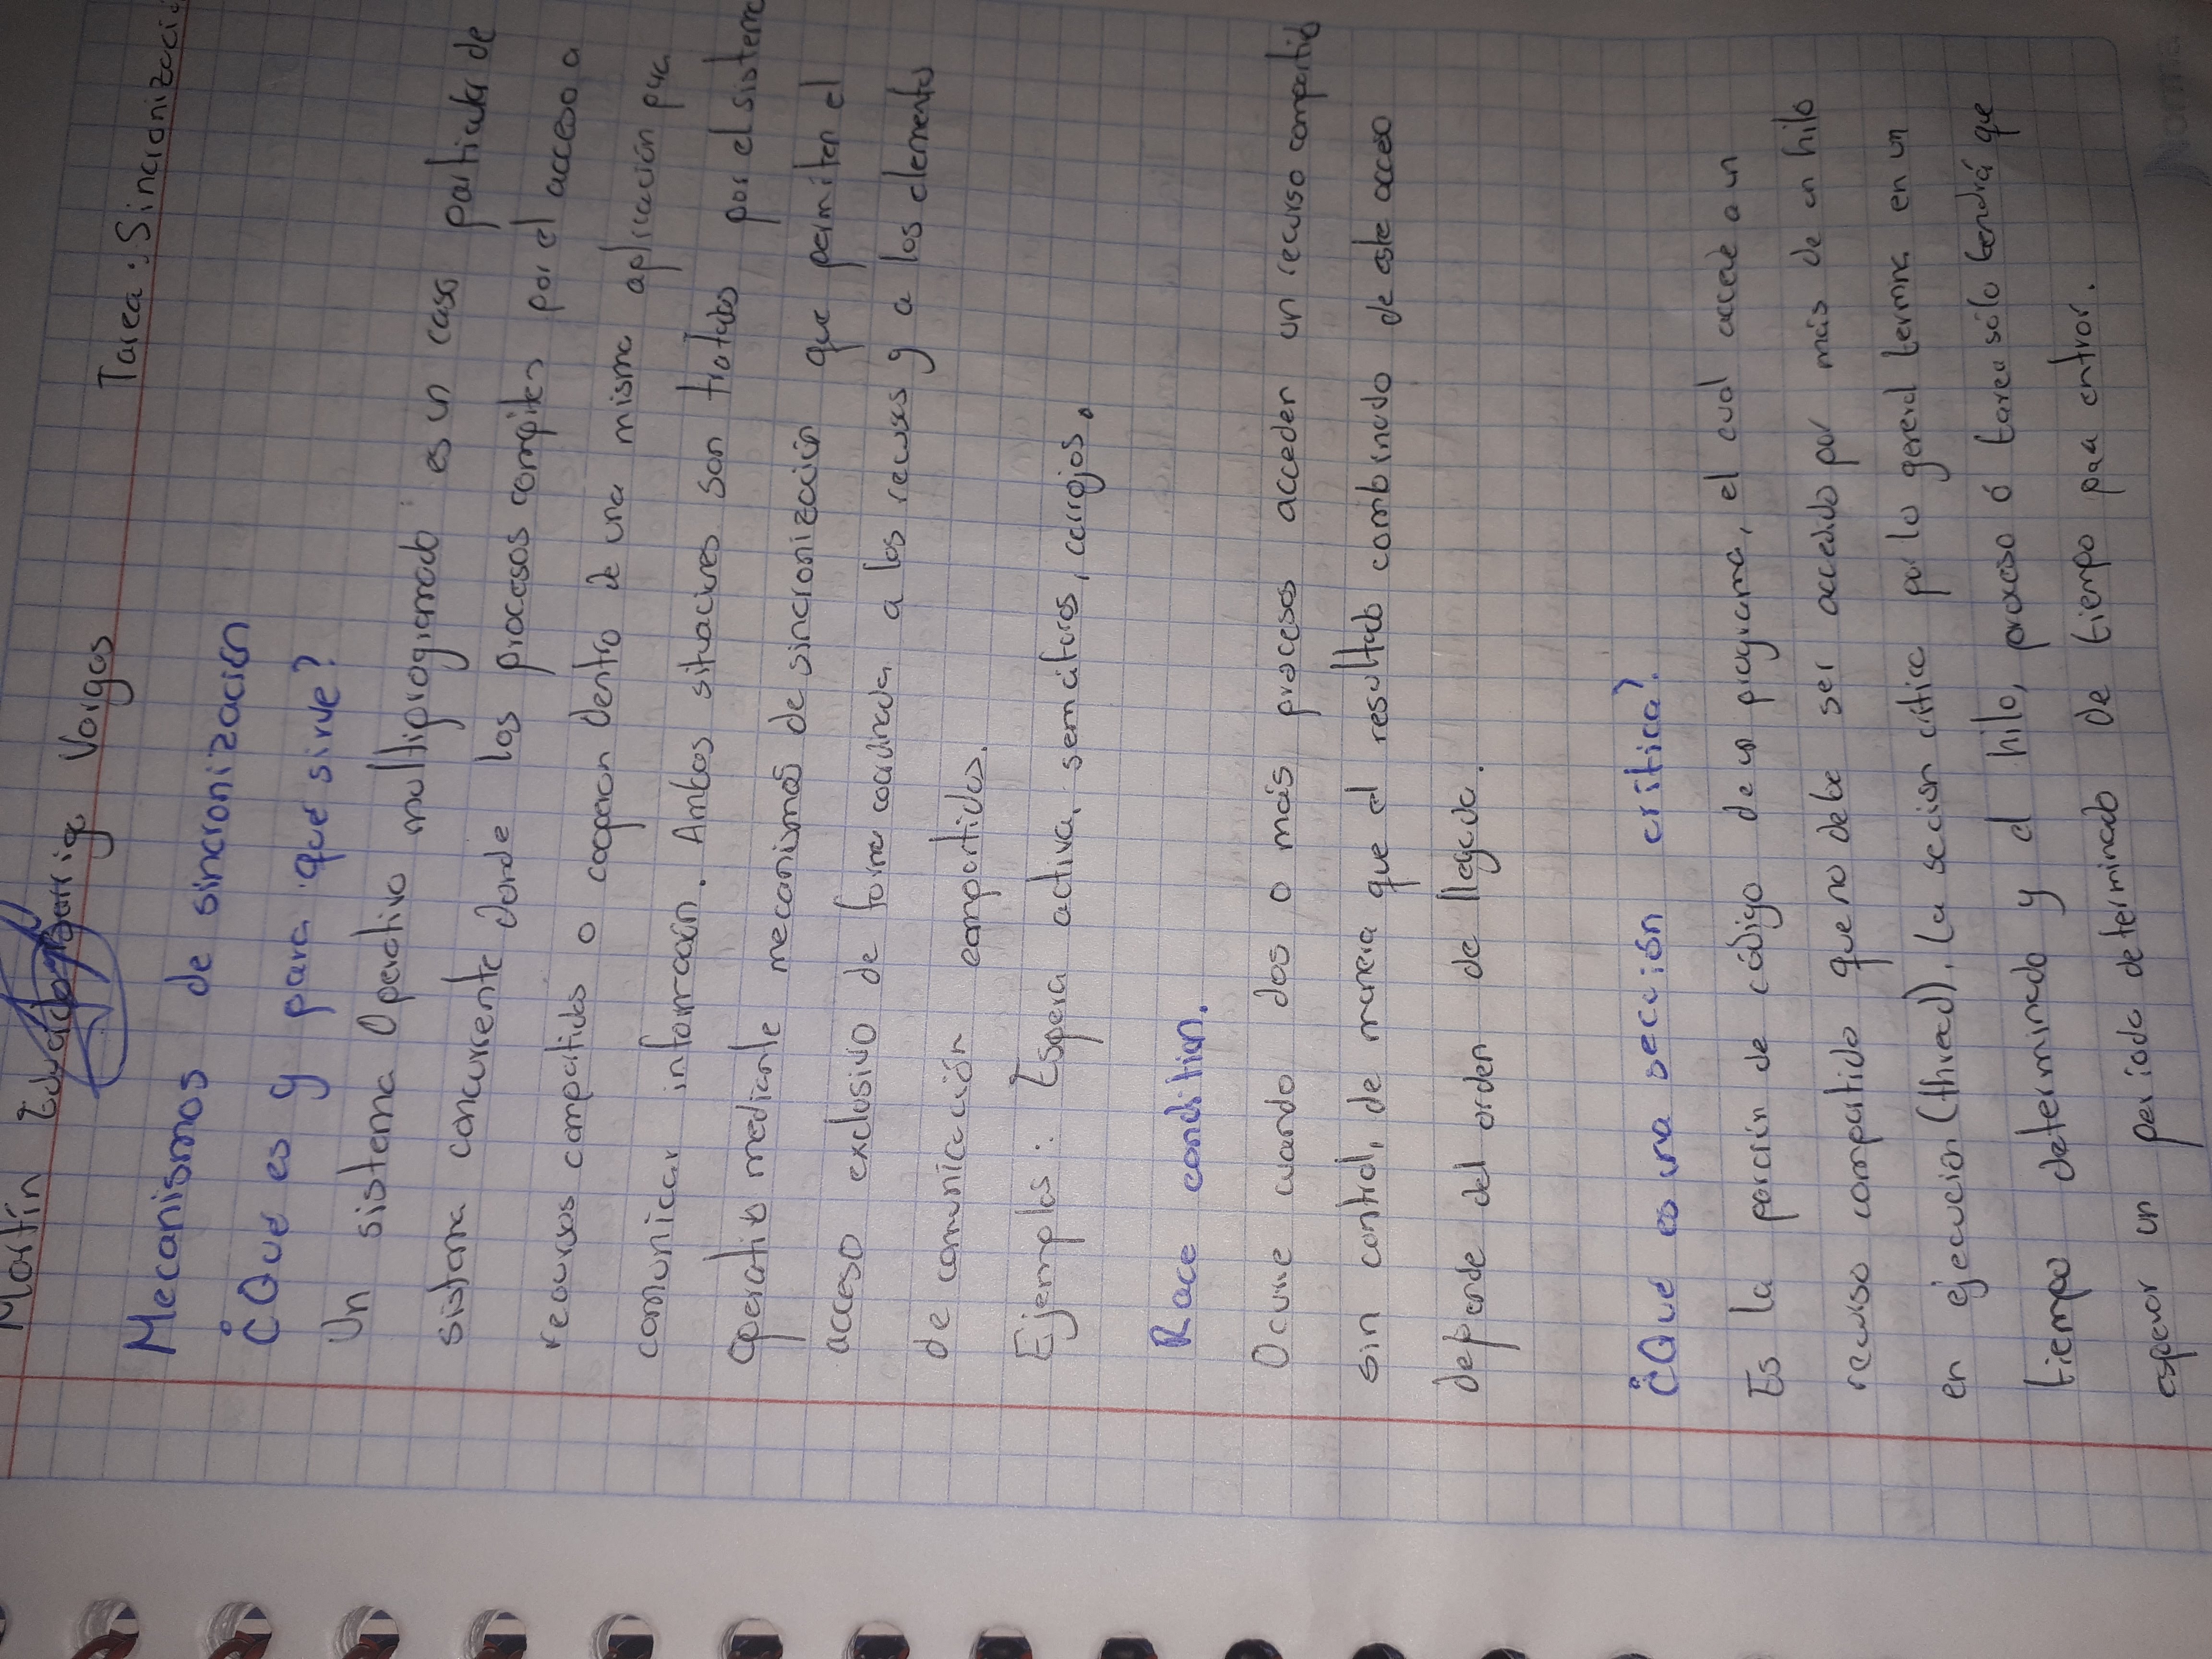 Martín Eduardo Barriga Vargas
Tarea: Sincronizació
Mecanismos de sincronización
¿Qué es y para qué sirve?
Un sistema Operativo multiprogramado es un caso particular de
sistema concurrente donde los procesos compiten por el acceso a
recursos compartidos o cooperan dentro de una misma aplicación para
comunicar información. Ambas situaciones son tratados por el sistema
operativo mediante mecanismos de sincronización que permiten el
acceso exclusivo de forma coordinada a los recursos y a los elementos
de comunicación compartidos.
Ejemplos: Espera activa, semáforos, cerrojos.
Race condition.
Ocurre cuando dos o más procesos acceden un recurso compartido
sin control, de manera que el resultado combinado de este acceso
depende del orden de llegada.
¿Qué es una sección crítica?
Es la porción de código de un programa, el cual accede a un
recurso compartido que no debe ser accedido por más de un hilo
en ejecucion (thread). La seccion crítica por lo general termina en un
tiempo determinado y el hilo, proceso ó tarea sólo tendrá que
esperar un período determinado de tiempo para entrar.
Norma